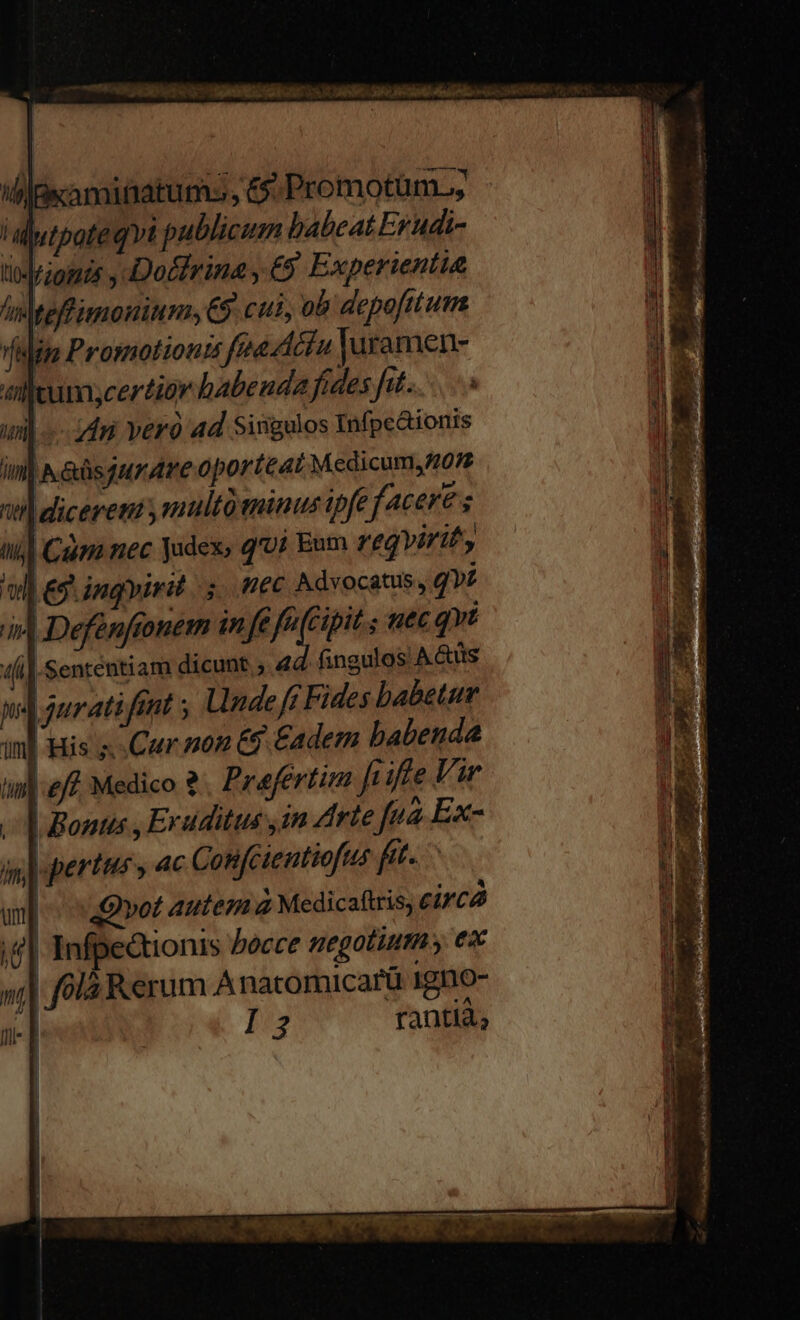 Examinatum, & Promotum,
utpote qvi publicum habeat Erudi-
tionis, Doctrinæ, & Experientiæ
testimonium, & cui, ob depositum
in Promotionis suæ Actu Juramen-
tum, certior habenda fides sit.
An verò ad Singulos Inspectionis
Actûs jurare oporteat Medicum, non
dicerem, multò minus ipse facere;
Cùm nec Judex, qvi Eum reqvirit,
& inqvirit; nec Advocatus, qvi
Defensionem in se suscipit; nec qvi
Sententiam dicunt, ad singulos Actûs
jurati sint; Unde si Fides habetur
His; Cur non & Eadem habenda
est Medico? Præsertim si iste Vir
Bonus, Eruditus, in Arte suâ Ex-
pertus, ac Conscientiosus sit.
Qvot autem à Medicastris, circà
Inspectionis hocce negotium, ex
solâ Rerum Anatomicarū igno-
I 3 rantiâ,